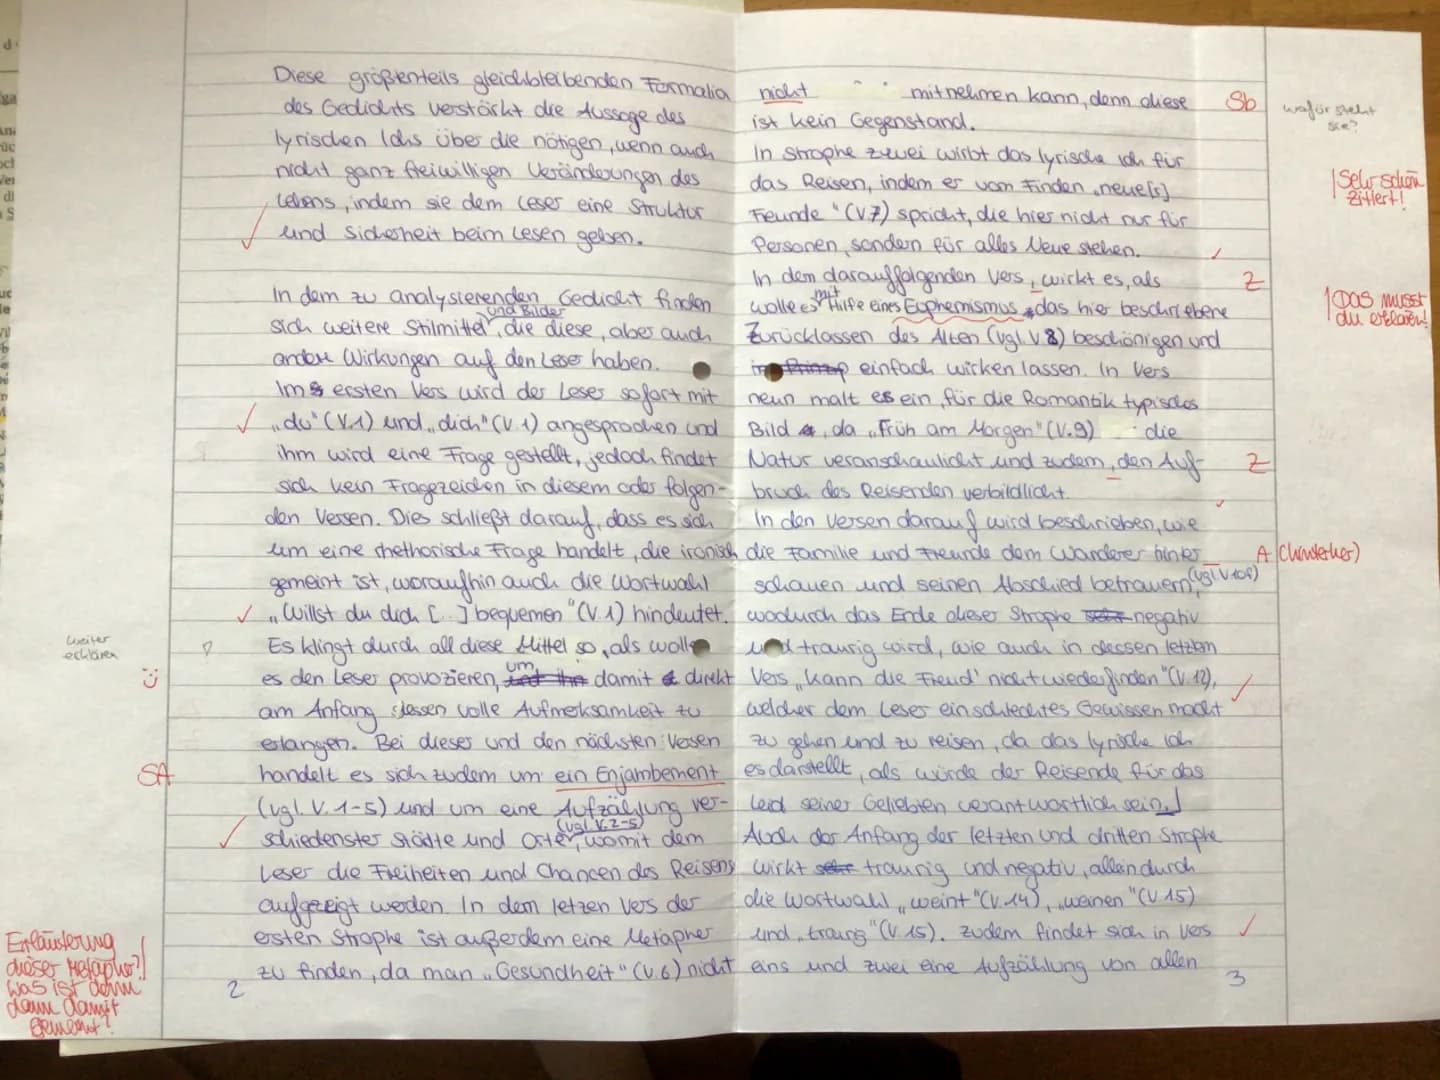 Diese größtenteils gleichbleibenden Formalia
des Gedichts verstärkt die Aussage des
lyrischen Ichs über die nötigen, wenn auch
nicht ganz freiwilligen Veränderungen des
Lebens, indem sie dem Leser eine Struktur
und Sicherheit beim Lesen geben.
In dem zu analysierenden Gedicht finden
und Bilder
sich weitere Stilmittel, die diese, aber auch
andere Wirkungen auf den Leser haben.
Im ersten Vers wird der Leser sofort mit
„du“ (V.1) und „dich“ (V.1) angesprochen und
ihm wird eine Frage gestellt, jedoch findet
sich kein Fragezeichen in diesem oder folgen-
den Versen. Dies schließt darauf, dass es sich
um eine rhethorische Frage handelt, die ironisch
gemeint ist, woraufhin auch die Wortwahl
„Willst du dich [...] bequemen“ (V.1) hindeutet.
Es klingt durch all diese Mittel so, als wolle
weiter
erklären
um
es den Leser provozieren, damit direkt
am Anfang dessen volle Aufmerksamkeit zu
erlangen. Bei dieser und den nächsten Versen
SA
handelt es sich zudem um ein Enjambement
(vgl. V. 1-5) und um eine Aufzählung ver-
(vgl. V. 2-5)
schiedenster Städte und Orte, womit dem
Leser die Freiheiten und Chancen des Reisens
aufgezeigt werden. In dem letzen Vers der
ersten Strophe ist außerdem eine Metapher
zu finden, da man „Gesundheit“ (V.6) nicht
2
Erläuterung
dieser Metapher?!
was ist denn
dann damit
gemeint?
nicht mitnehmen kann, denn diese
Sb
wofür steht
sie?
ist kein Gegenstand.
In Strophe zwei wirbt das lyrische Ich für
das Reisen, indem er vom Finden „neue[r]
Sehr schön
zitiert!
Feunde“ (V.7) spricht, die hier nicht nur für
Personen, sondern für alles Neue stehen.
In dem darauffolgenden Vers, wirkt es, als
Z
mit
wolle es Hilfe eines Euphemismus das hier beschriebene
Das musst
du erklären!
Zurücklassen des Alten (vgl. V. 8) beschönigen und
einfach wirken lassen. In Vers
neun malt es ein, für die Romantik typisches
Bild, da „Früh am Morgen“ (V.9) die
Natur veranschaulicht und zudem, den Auf-
Z
bruch des Reisenden verbildlicht.
In den Versen darauf wird beschrieben, wie
die Familie und Freunde dem Wanderer hinter
A (hinterher)
schauen und seinen Abschied betrauern, (vgl. V.10f)
wodurch das Ende dieser Strophe negativ
und traurig wird, wie auch in dessen letztem
Vers „kann die Freud' nicht wiederfinden“ (V.12),
welcher dem Leser ein schlechtes Gewissen macht
zu gehen und zu reisen, da das lyrische Ich
es darstellt, als würde der Reisende für das
Leid seiner Geliebten verantwortlich sein.
Auch der Anfang der letzten und dritten Strophe
wirkt traurig und negativ, allein durch
die Wortwahl „weint“ (V.14), „weinen“ (V.15)
und „traurig“ (V.15). Zudem findet sich in Vers
eins und zwei eine Aufzählung von allen
3